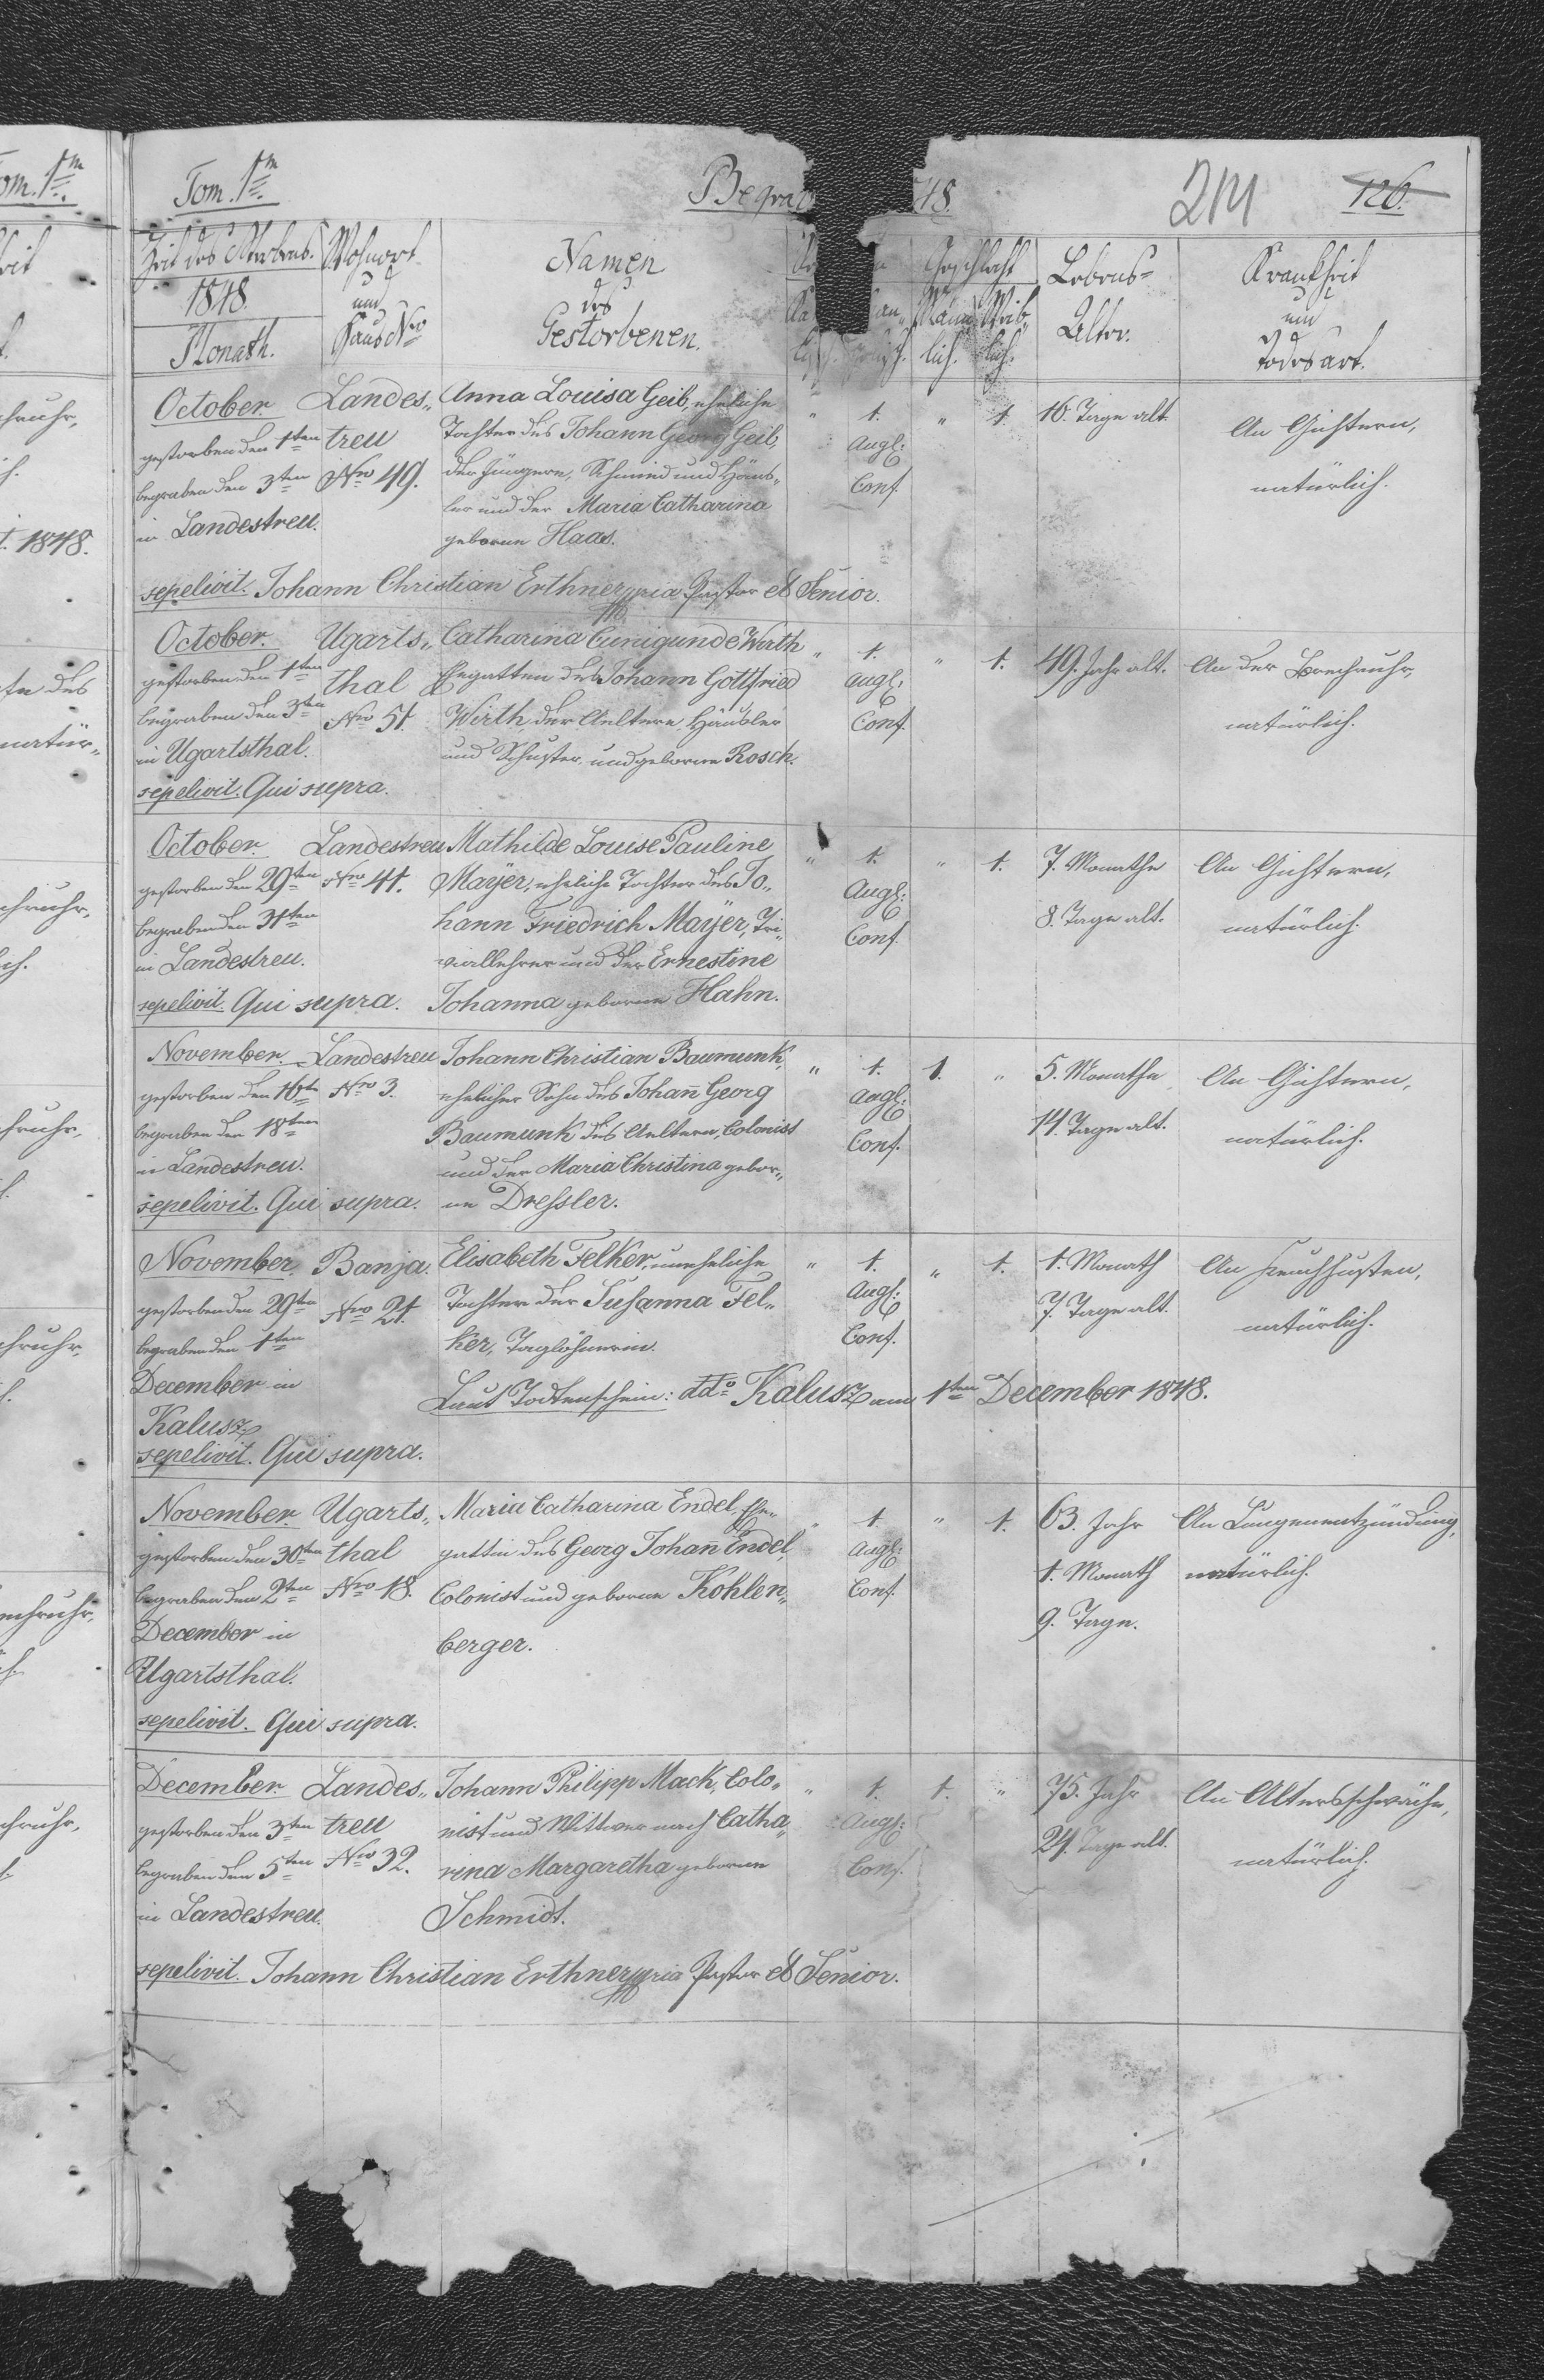 Tom. 1m
Begrab 48.
214 126.
Zeit des Sterbens. Wohnort Namen Geschlecht Lebens= Krankheit
1848. und des Männ Weib Alter. und
Monath. Haus Nro Gestorbenen. lich. lich. Todesart.
October. Landes„ Anna Louisa Geib, eheliche „ 1. „ 1. 16. Tage alt. An Gichtern,
gestorben den 1ten treu Tochter des Johann Georg Geib, Augs:
begraben den 3ten Nro 49. der Jüngere, Schmied und Häus„ Conf. natürlich.
in Landestreu. ler und der Maria Catharina
geborne Haas.
sepelivit. Johann Christian Erthner mpria Pastor et Senior.
October. Ugarts„ Catharina Cunigunde Wirth „ 1. „ 1. 49. Jahr alt. An der Brechruhr,
gestorben den 1ten thal Ehgatten des Johann Gottfried augs:
begraben den 3ten Nro 51. Wirth, der Aeltere, Häusler Conf. natürlich.
in Ugartsthal. und Schuster, und geborne Rosch.
sepelivit. Qui supra.
October. Landestreu Mathilde Louise Pauline „ 1. „ 1. 7. Monathe An Gichtern,
gestorben den 29ten Nro 41. Mayer, eheliche Tochter des Jo„ Augs: 8. Tage alt. natürlich.
begraben den 31ten hann Friedrich Mayer, Tri„ Conf.
in Landestreu. viallehrer und der Ernestine
sepelivit. Qui supra. Johanna geborne Hahn.
November. Landestreu Johann Christian Baumunk, „ 1. 1. „ 5. Monathe An Gichtern,
gestorben den 16ten Nro 3. ehelicher Sohn des Johan̄ Georg augs: 14. Tage alt. natürlich.
begraben den 18ten Baumunk des Aeltern, Colonist Conf.
in Landestreu. und der Maria Christina gebor„
sepelivit. Qui supra. ne Dressler.
November. Banja. Elisabeth Felker, uneheliche „ 1. „ 1. 1. Monath An Keuchhusten,
gestorben den 29ten Nro 21. Tochter der Susanna Fel„ Augs: 7. Tage alt. natürlich.
begraben den 1ten ker, Taglöhnerin. Conf.
December in Laut Todtenschein: ddo Kalusz am 1ten December 1848.
Kalusz
sepelivit. Qui supra.
November. Ugarts„ Maria Catharina Endel, Ehe„ „ 1. „ 1. 63. Jahr An Lungenentzündung,
gestorben den 30ten thal gattin des Georg Johan̄ Endel, augs: 1. Monath natürlich.
begraben den 2ten Nro 18. Colonist und geborne Kohlen„ Conf. 9. Tage.
December in berger.
Ugartsthal.
sepelivit. Qui supra.
December. Landes„ Johann Philipp Mack, Colo„ „ 1. 1. „ 75. Jahr An Altersschwäche,
gestorben den 3ten treu nist und Wittwer nach Catha„ Augs: 24. Tage alt. natürlich.
begraben den 5ten Nro 32. rina Margaretha geborne Conf.
in Landestreu. Schmidt.
sepelivit. Johann Christian Erthner mpria Pastor et Senior.